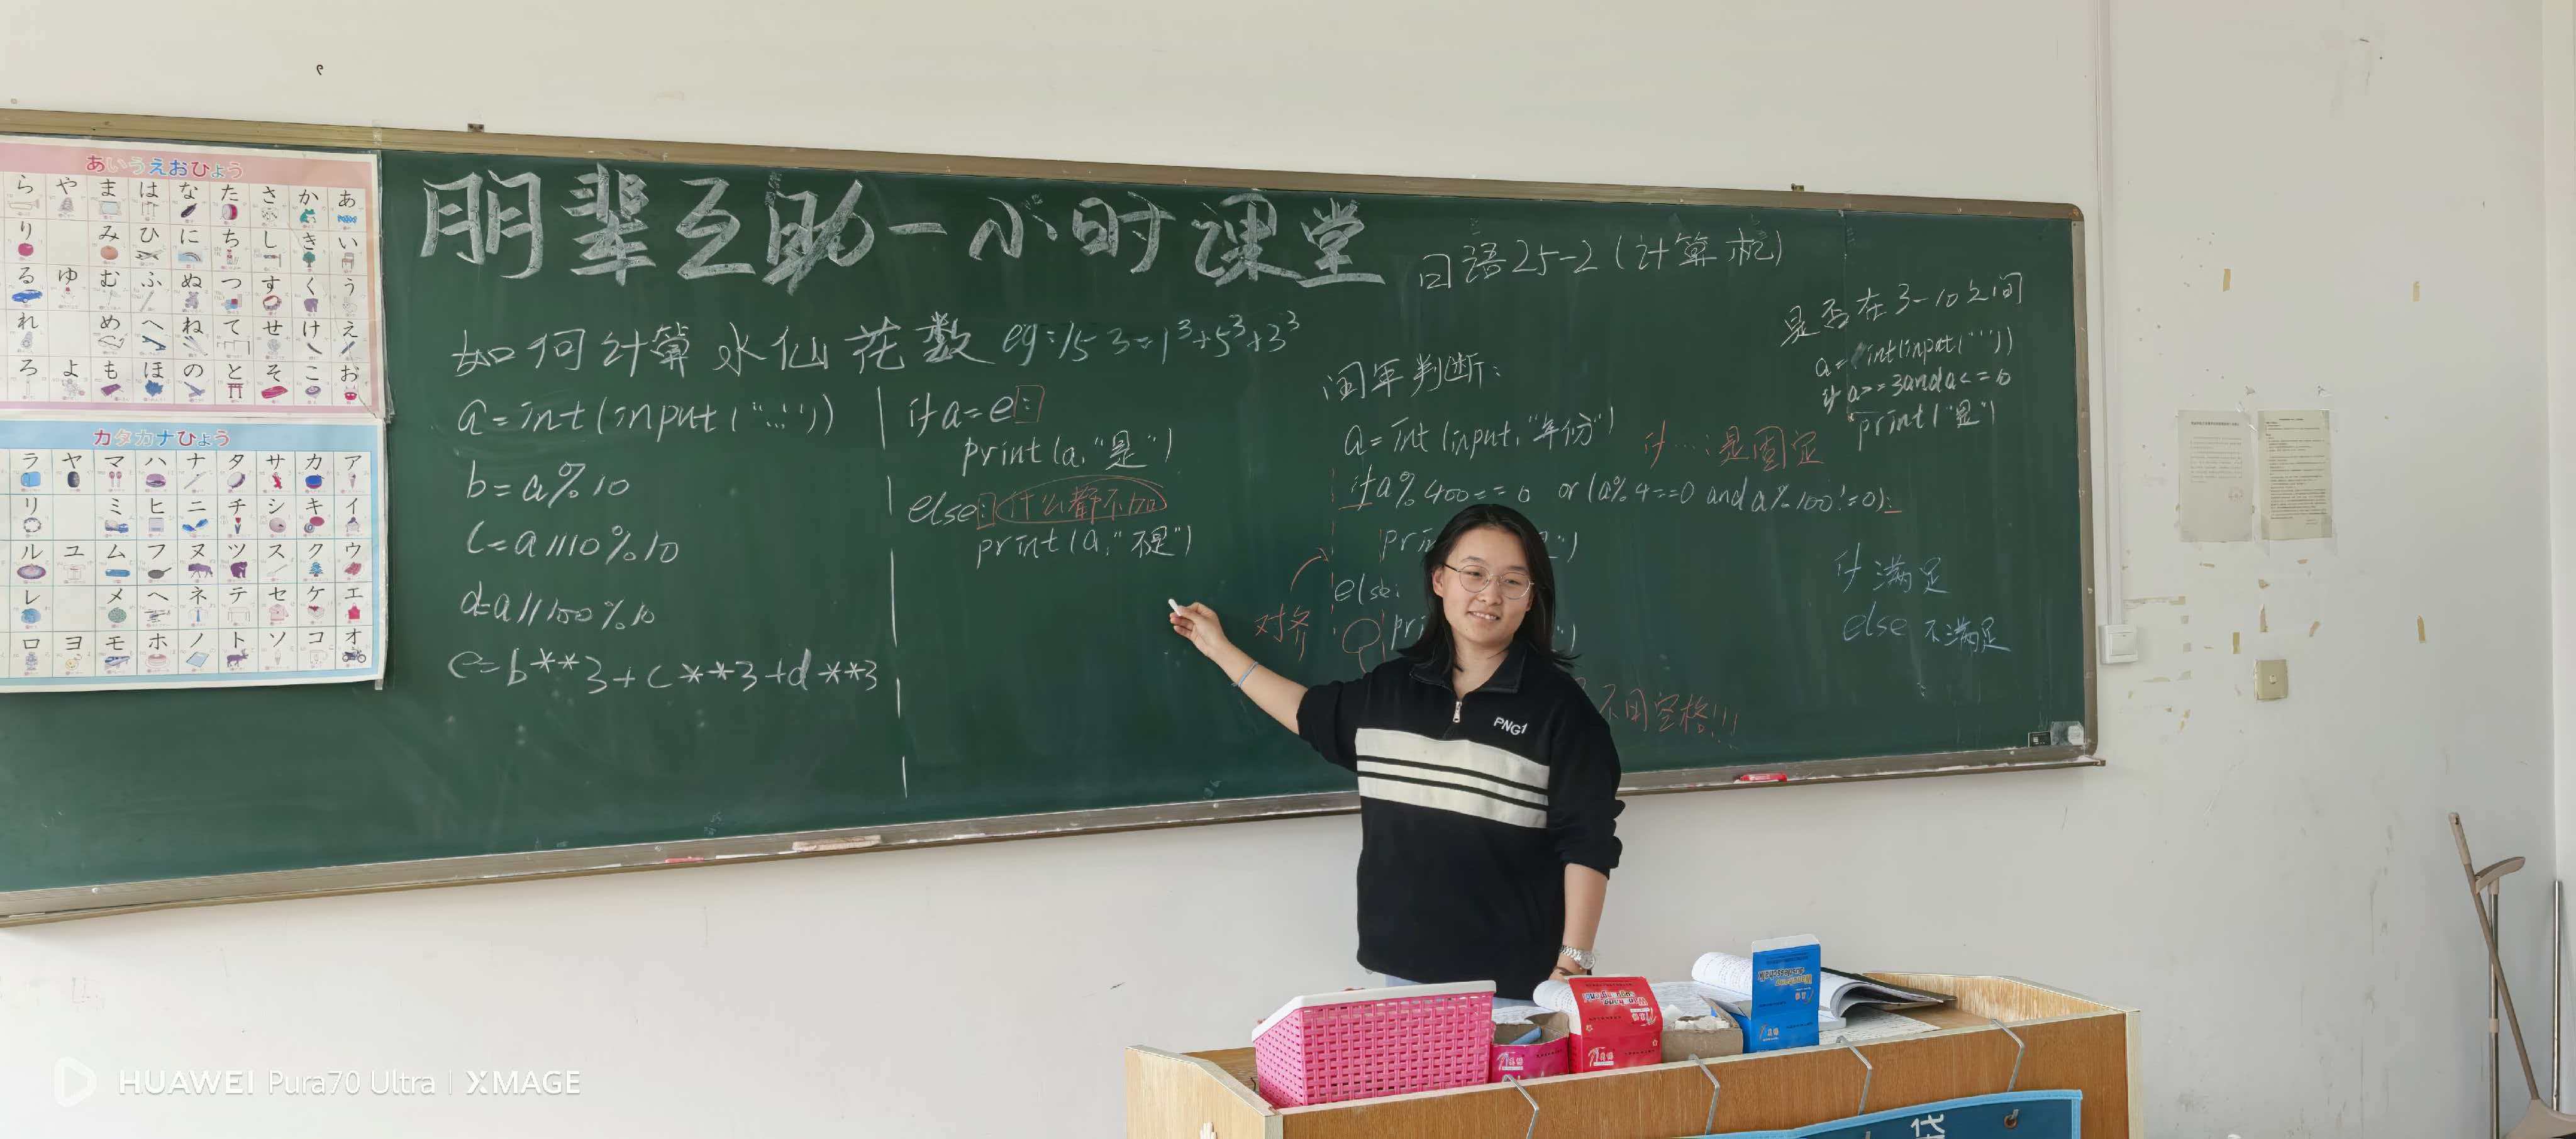 あいうえおひょう
らやまはなたさかあ
りみひにちしきい
るゆむふぬつすくう
れめへねてせけえ
ろよもほのとそこお
カタカナひょう
ラヤマハナタサカア
リミヒニチシキイ
ルユムフヌツスクウ
レメヘネテセケエ
ロヨモホノトソコオ
朋辈互助一小时课堂
日语25-2(计算机)
如何计算水仙花数 eg:153=1³+5³+3³
a=int(input("..."))
b=a%10
c=a//10%10
d=a//100%10
e=b**3+c**3+d**3
if a=e:
print(a,"是")
else:什么都不加
print(a,"不是")
闰年判断:
a=int(input,"年份")
if…:是固定
if a%400==0 or(a%4==0 and a%100!=0):
pri
else:
pri
对齐
不用空格!!!
是否在3-10之间
a=int(input("..."))
if a>=3anda<=10
print("是")
if 满足
else 不满足
PNG1
HUAWEI Pura70 Ultra | XMAGE